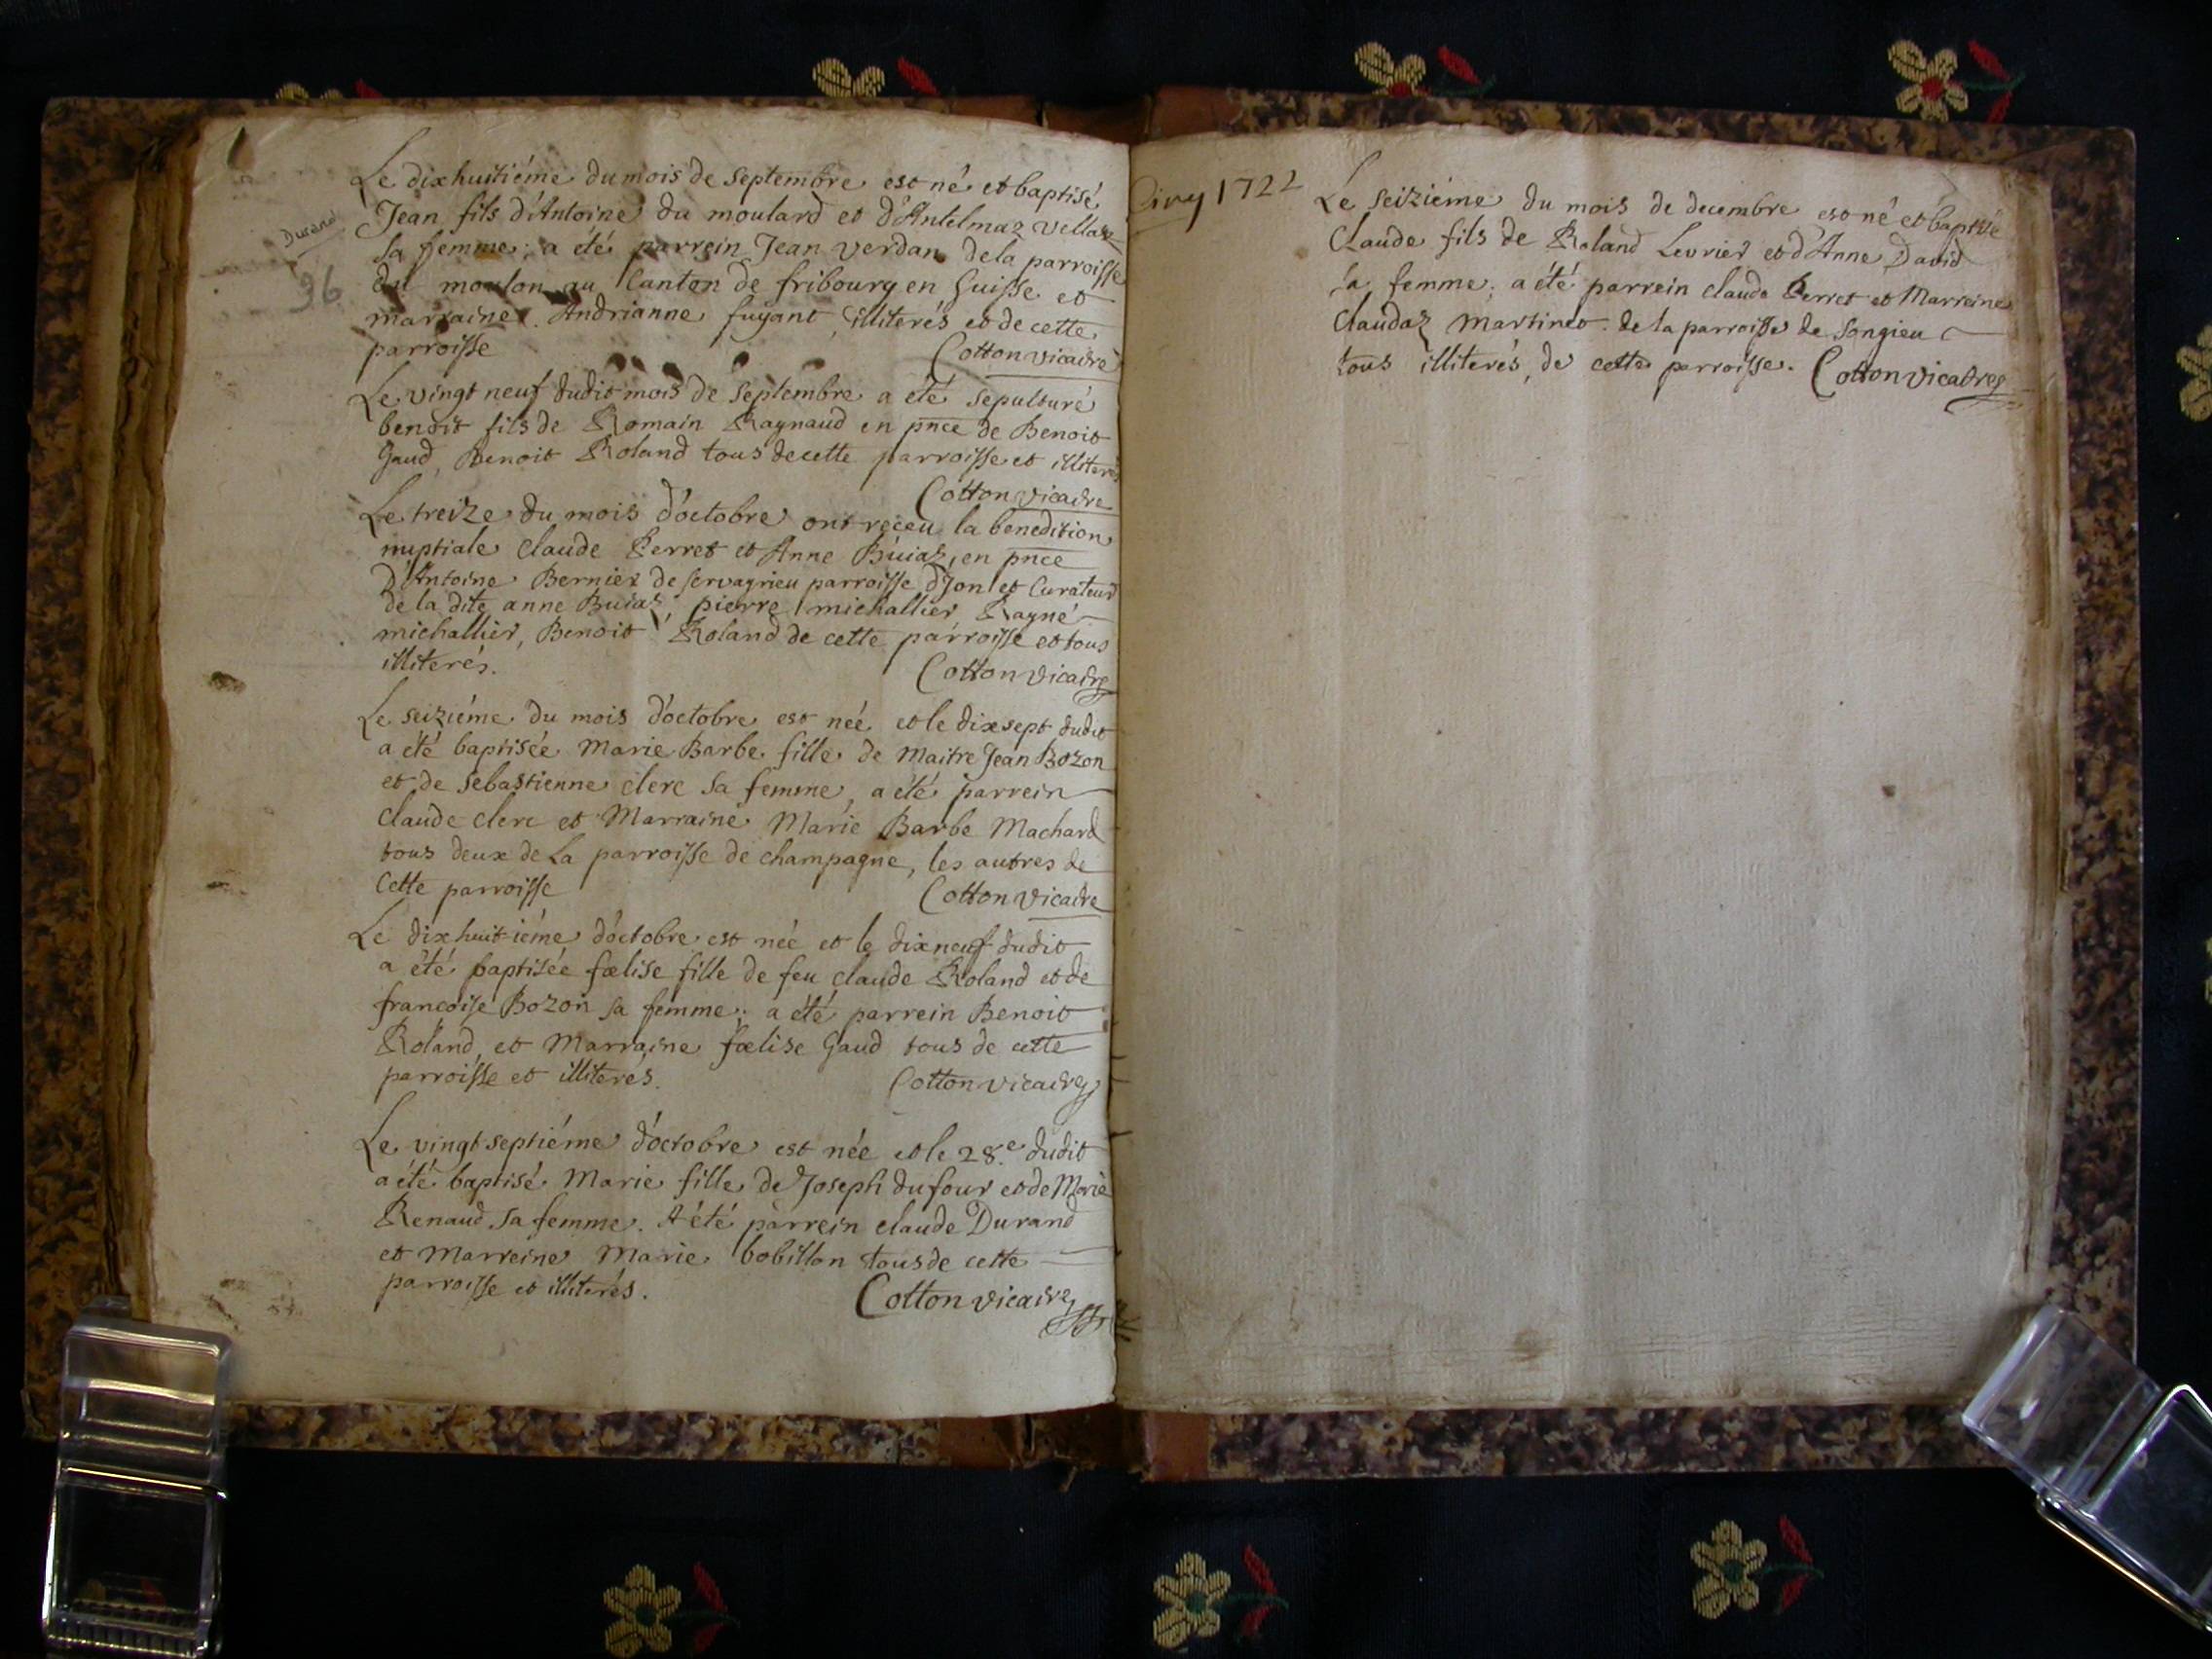 Le dixhuitiéme du mois de septembre est né et baptisé
Jean fils d'Antoine du moulard et d'Antelmaz Vellaz
Durand
sa femme; a été parrein Jean Verdan de la parroisse
96
du moulon au Canton de fribourg en Suisse et
marraine Andrianne fuyant, illiterés et de cette
parroisse Cotton vicaire
Le vingt neuf dudit mois de Septembre a été sepulturé
benoit fils de Romain Raynaud en pnce de Benoit
Gaud, Benoit Roland tous de cette parroisse et illiterés
Cotton vicaire
Le treize du mois d'octobre ont receu la benedition
nuptiale Claude Perret et Anne Buiaz, en pnce
d'Antoine Bernier de servagnieu parroisse d'Jon et Curateur
de la dite anne Buiaz pierre michallier Rayné
michallier, Benoit Roland de cette parroisse et tous
illiterés. Cotton vicaire
Le seiziéme du mois d'octobre est née et le dixsept dudit
a été baptisée Marie Barbe fille de Maitre Jean Bozon
et de sebastienne clerc sa femme, a été parrein
Claude clerc et Marraine Marie Barbe Machard
tous deux de La parroisse de champagne, les autres de
Cette parroisse Cotton vicaire
Le dixhuitiéme d'octobre est née et le dixneuf dudit
a été baptisée fœlise fille de feu claude Roland et de
francoise Bozon sa femme; a été parrein Benoit
Roland, et Marraine fœlise Gaud tous de cette
parroisse et illiterés. Cotton vicaire
Le vingt septiéme d'octobre est née et le 28.e dudit
a été baptisé Marie fille de Joseph dufour et de Marie
Renaud sa femme. A été parrein claude Durand
et Marreine Marie bobillon tous de cette
parroisse et illiterés. Cotton vicaire
1722
Le seiziéme du mois de decembre est né et baptisé
Claude fils de Roland Levrier et d'Anne David
sa femme; a été parrein claude Perret et Marreine
Claudaz Martinet de la parroisse de Songieu
tous illiterés, de cette parroisse. Cotton vicaire